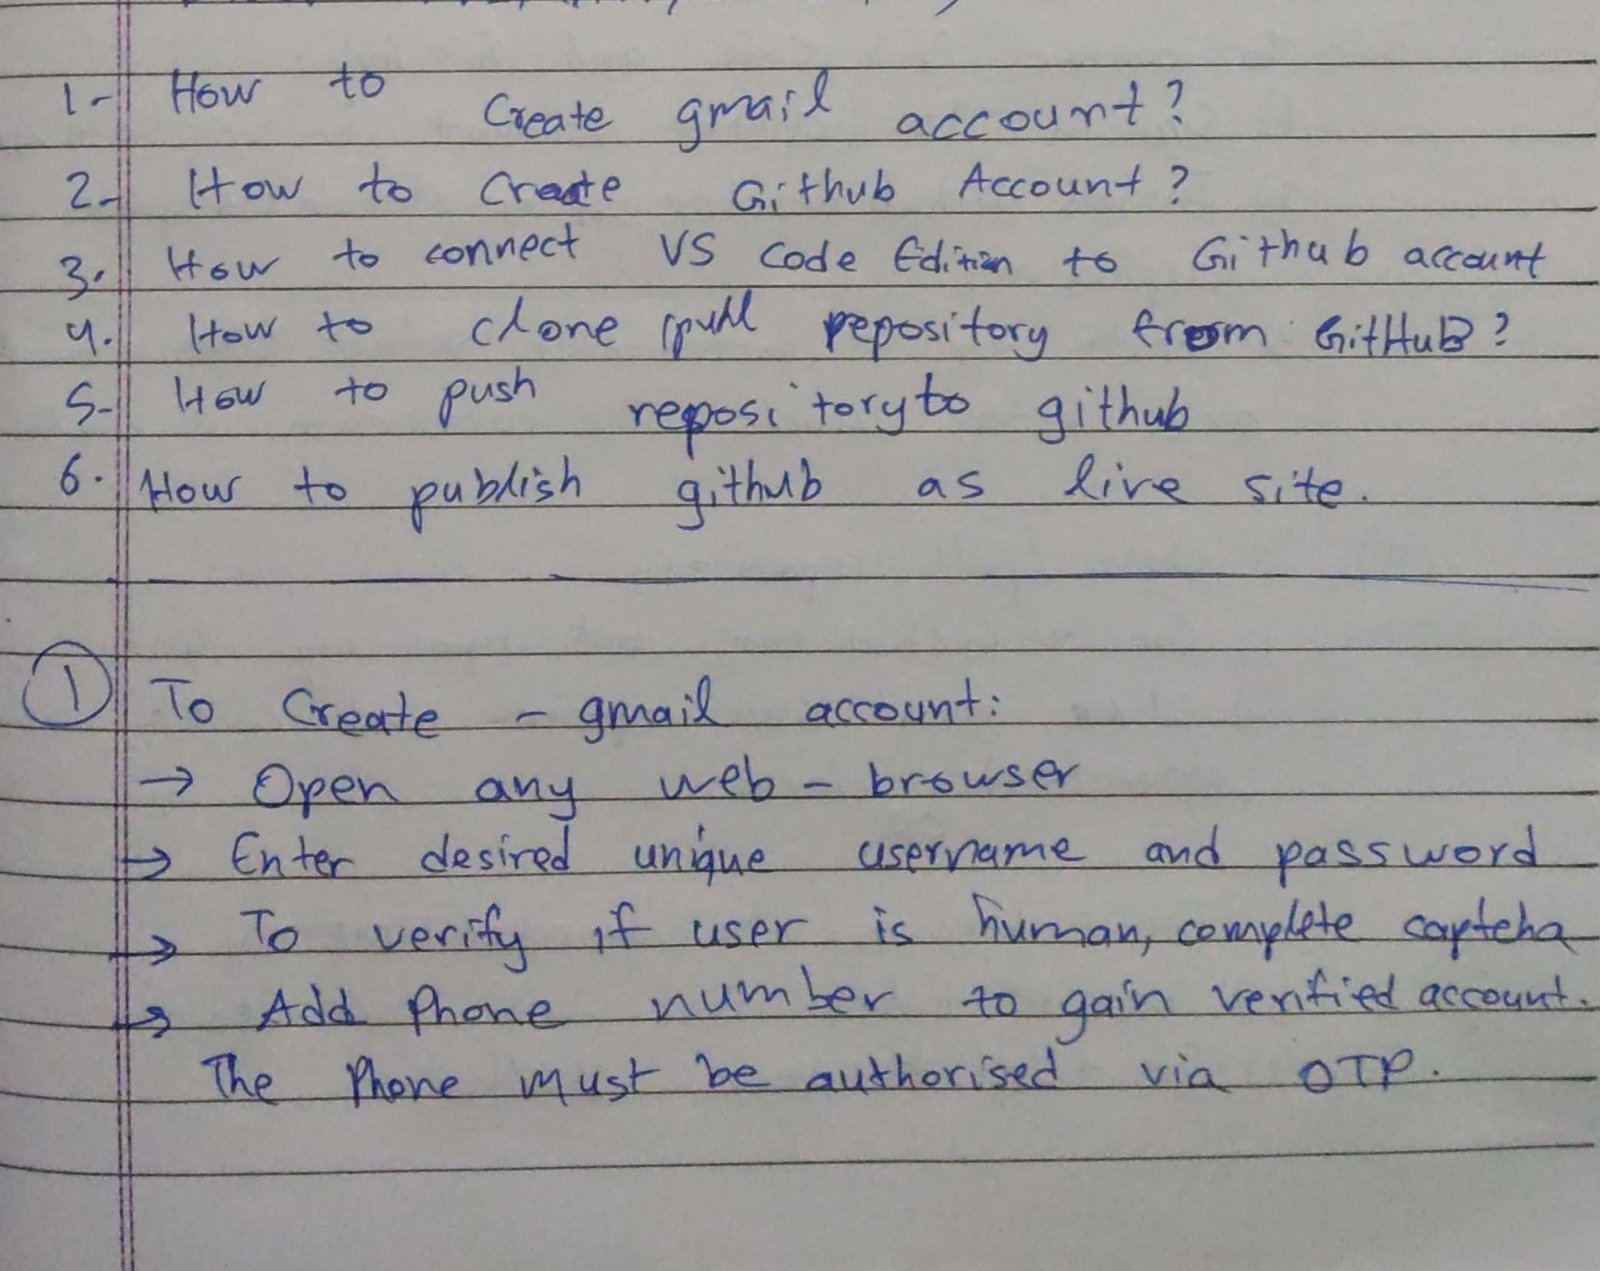 1- How to Create gmail account?
2- How to Create Github Account?
3. How to connect VS Code Edition to Github account
4. How to clone /pull repository from GitHub?
5- How to push repository to github
6. How to publish github as live site.
1 To Create - gmail account:
→ Open any web - browser
→ Enter desired unique username and password
→ To verify if user is human, complete captcha
→ Add Phone number to gain verified account.
The Phone must be authorised via OTP.